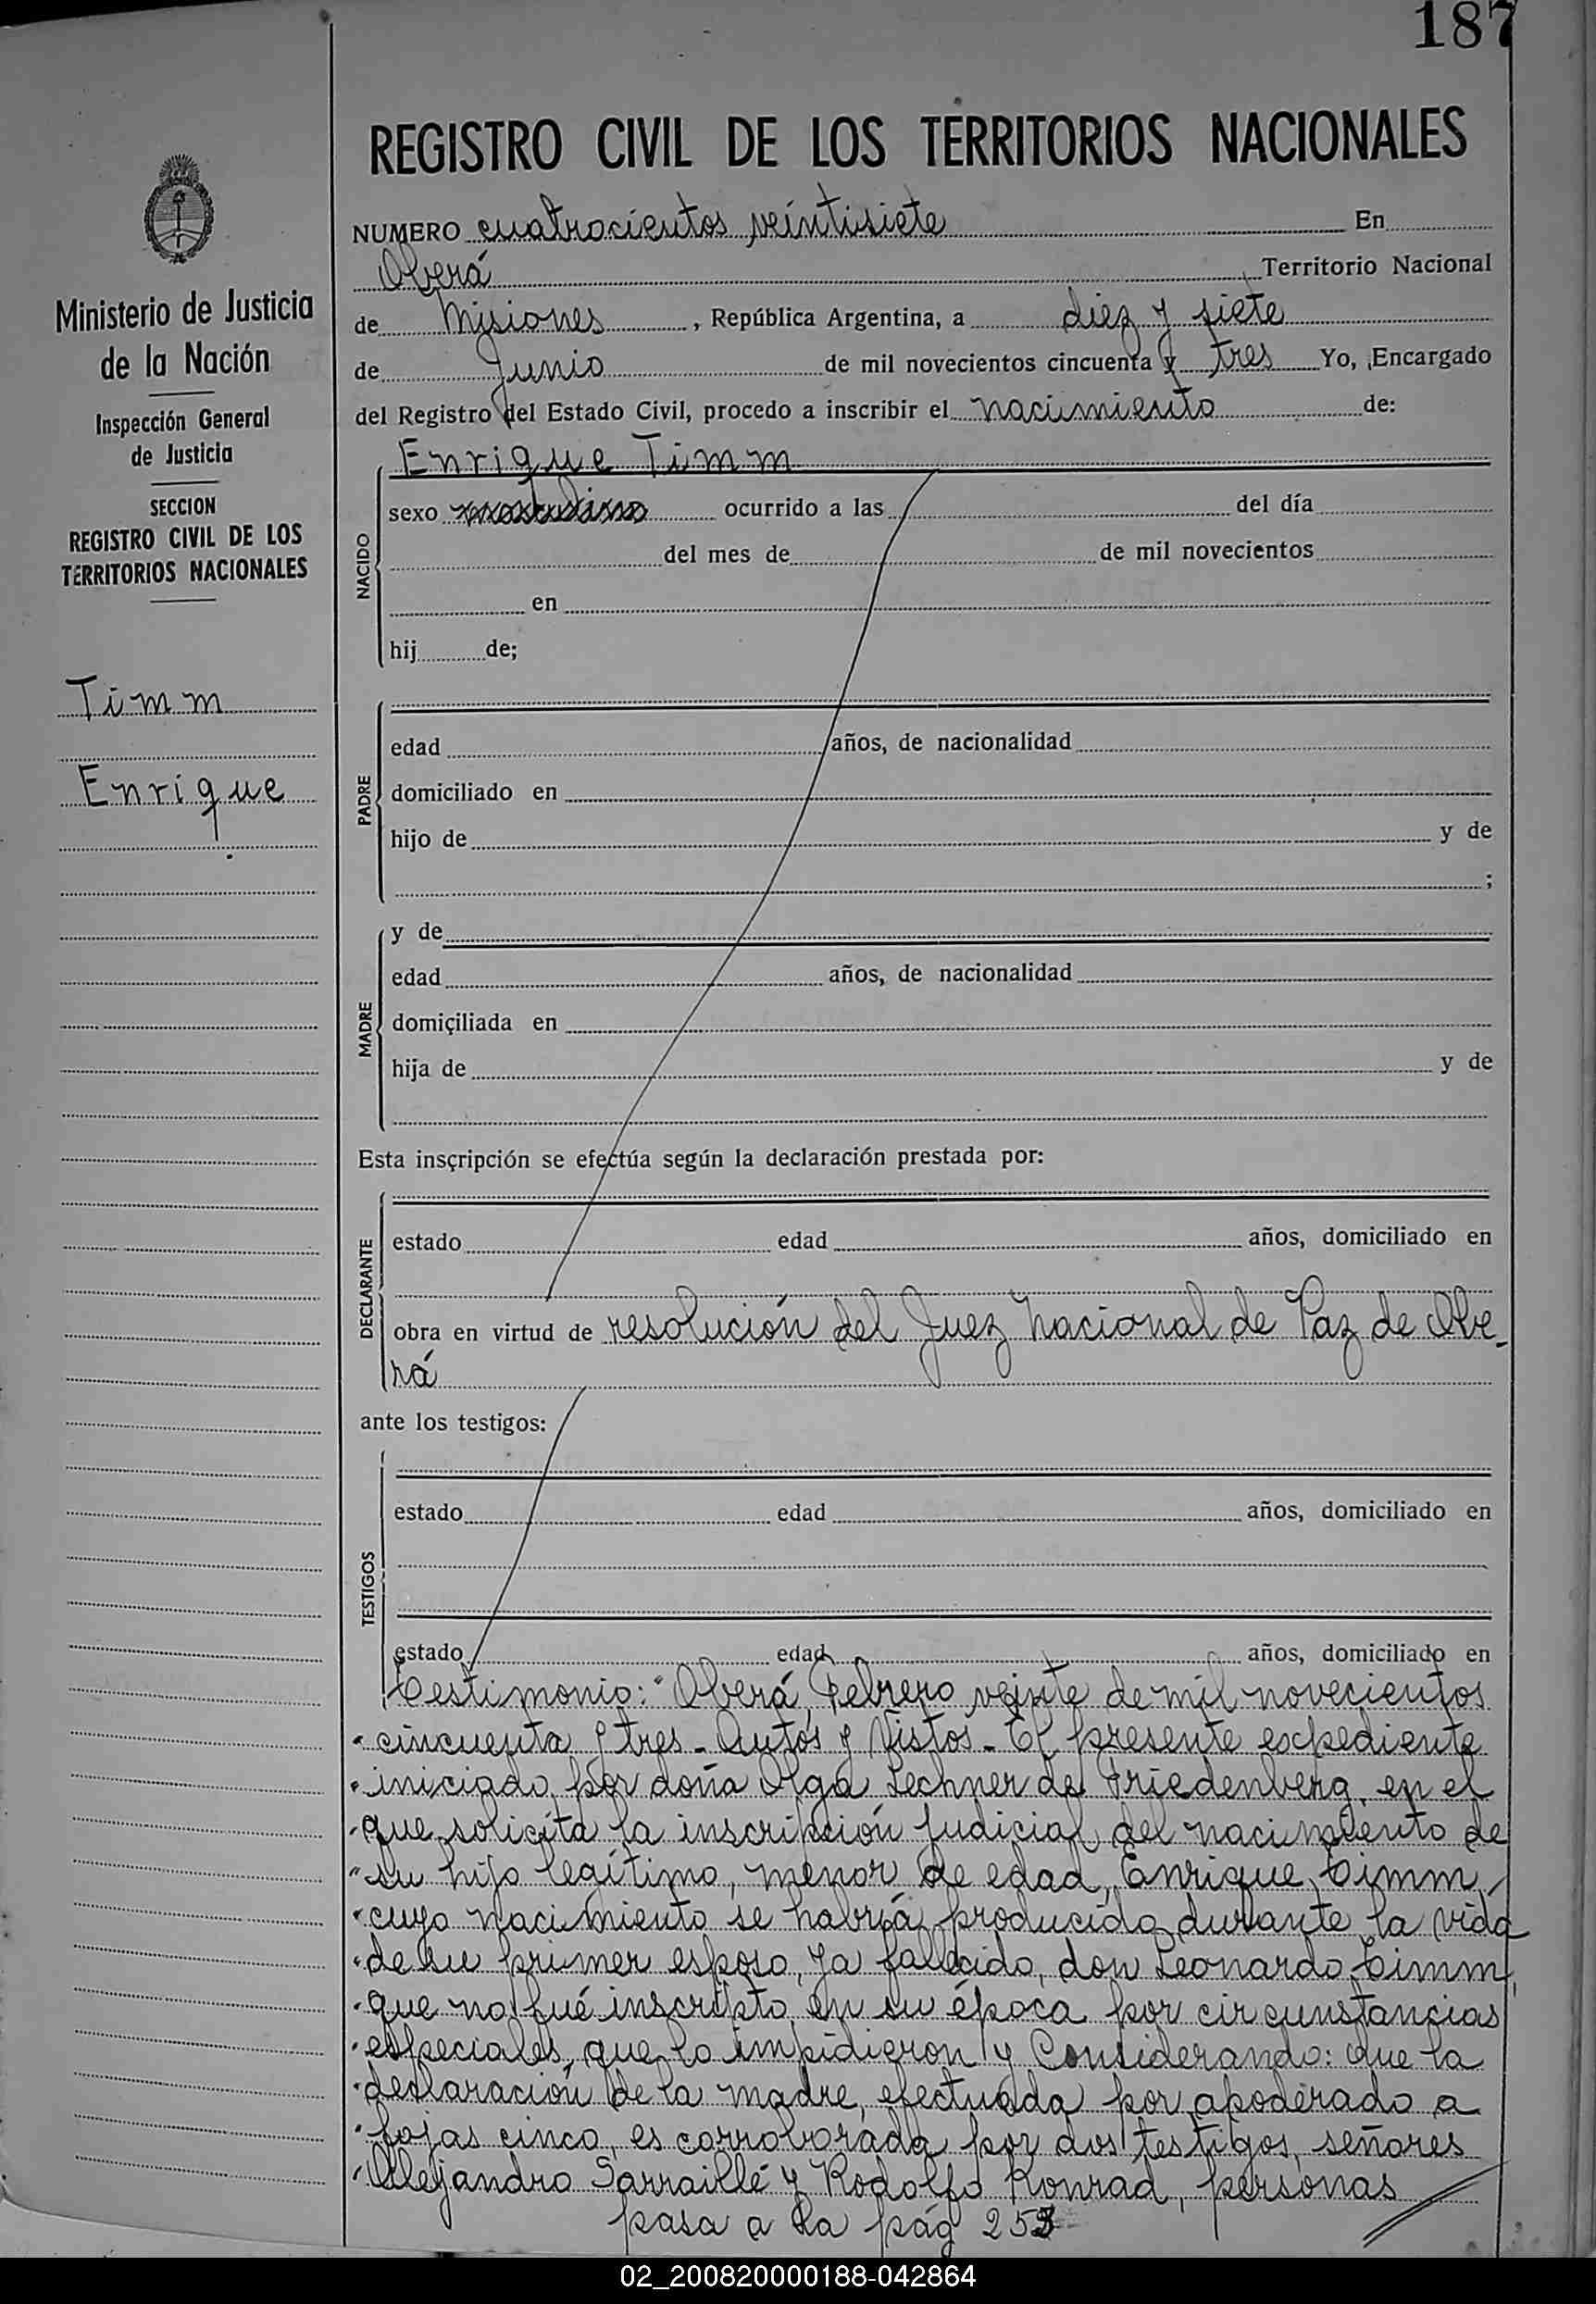 187
REGISTRO CIVIL DE LOS TERRITORIOS NACIONALES
Ministerio de Justicia
de la Nación
Inspección General
de Justicia
SECCION
REGISTRO CIVIL DE LOS
TERRITORIOS NACIONALES
Timm
Enrique
NUMERO cuatrocientos veintisiete En
Oberá Territorio Nacional
de Misiones, República Argentina, a diez y siete
de Junio de mil novecientos cincuenta y tres Yo, Encargado
del Registro del Estado Civil, procedo a inscribir el nacimiento de:
NACIDO
Enrique Timm
sexo masculino ocurrido a las del día
del mes de de mil novecientos
en
hij de;
PADRE
edad años, de nacionalidad
domiciliado en
hijo de y de
;
MADRE
y de
edad años, de nacionalidad
domiciliada en
hija de y de
Esta inscripción se efectúa según la declaración prestada por:
DECLARANTE
estado edad años, domiciliado en
obra en virtud de resolución del Juez Nacional de Paz de Obe-
rá
ante los testigos:
TESTIGOS
estado edad años, domiciliado en
estado edad años, domiciliado en
Testimonio: "Oberá, Febrero veinte de mil novecientos
"cincuenta y tres - Autos y Vistos - El presente expediente
"iniciado por doña Olga Lechner de Friedenberg, en el
"que solicita la inscripción judicial del nacimiento de
"su hijo legítimo, menor de edad, Enrique Timm,
"cuyo nacimiento se habría producido durante la vida
"de su primer esposo, ya fallecido, don Leonardo Timm,
"que no fué inscripto en su época por circunstancias
"especiales, que lo impidieron y Considerando: Que la
"declaración de la madre, efectuada por apoderado a
"fojas cinco, es corroborada por dos testigos, señores
"Alejandro Sarraillé y Rodolfo Konrad, personas
pasa a la pág 253
02_200820000188-042864